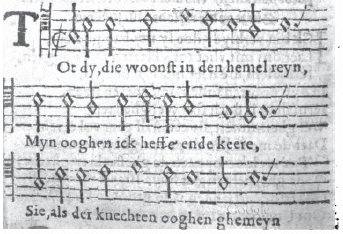 TOt dy, die woonſt in den hemel reyn,
Myn ooghen ick heffe ende keere,
Sie, als der knechten ooghen ghemeyn